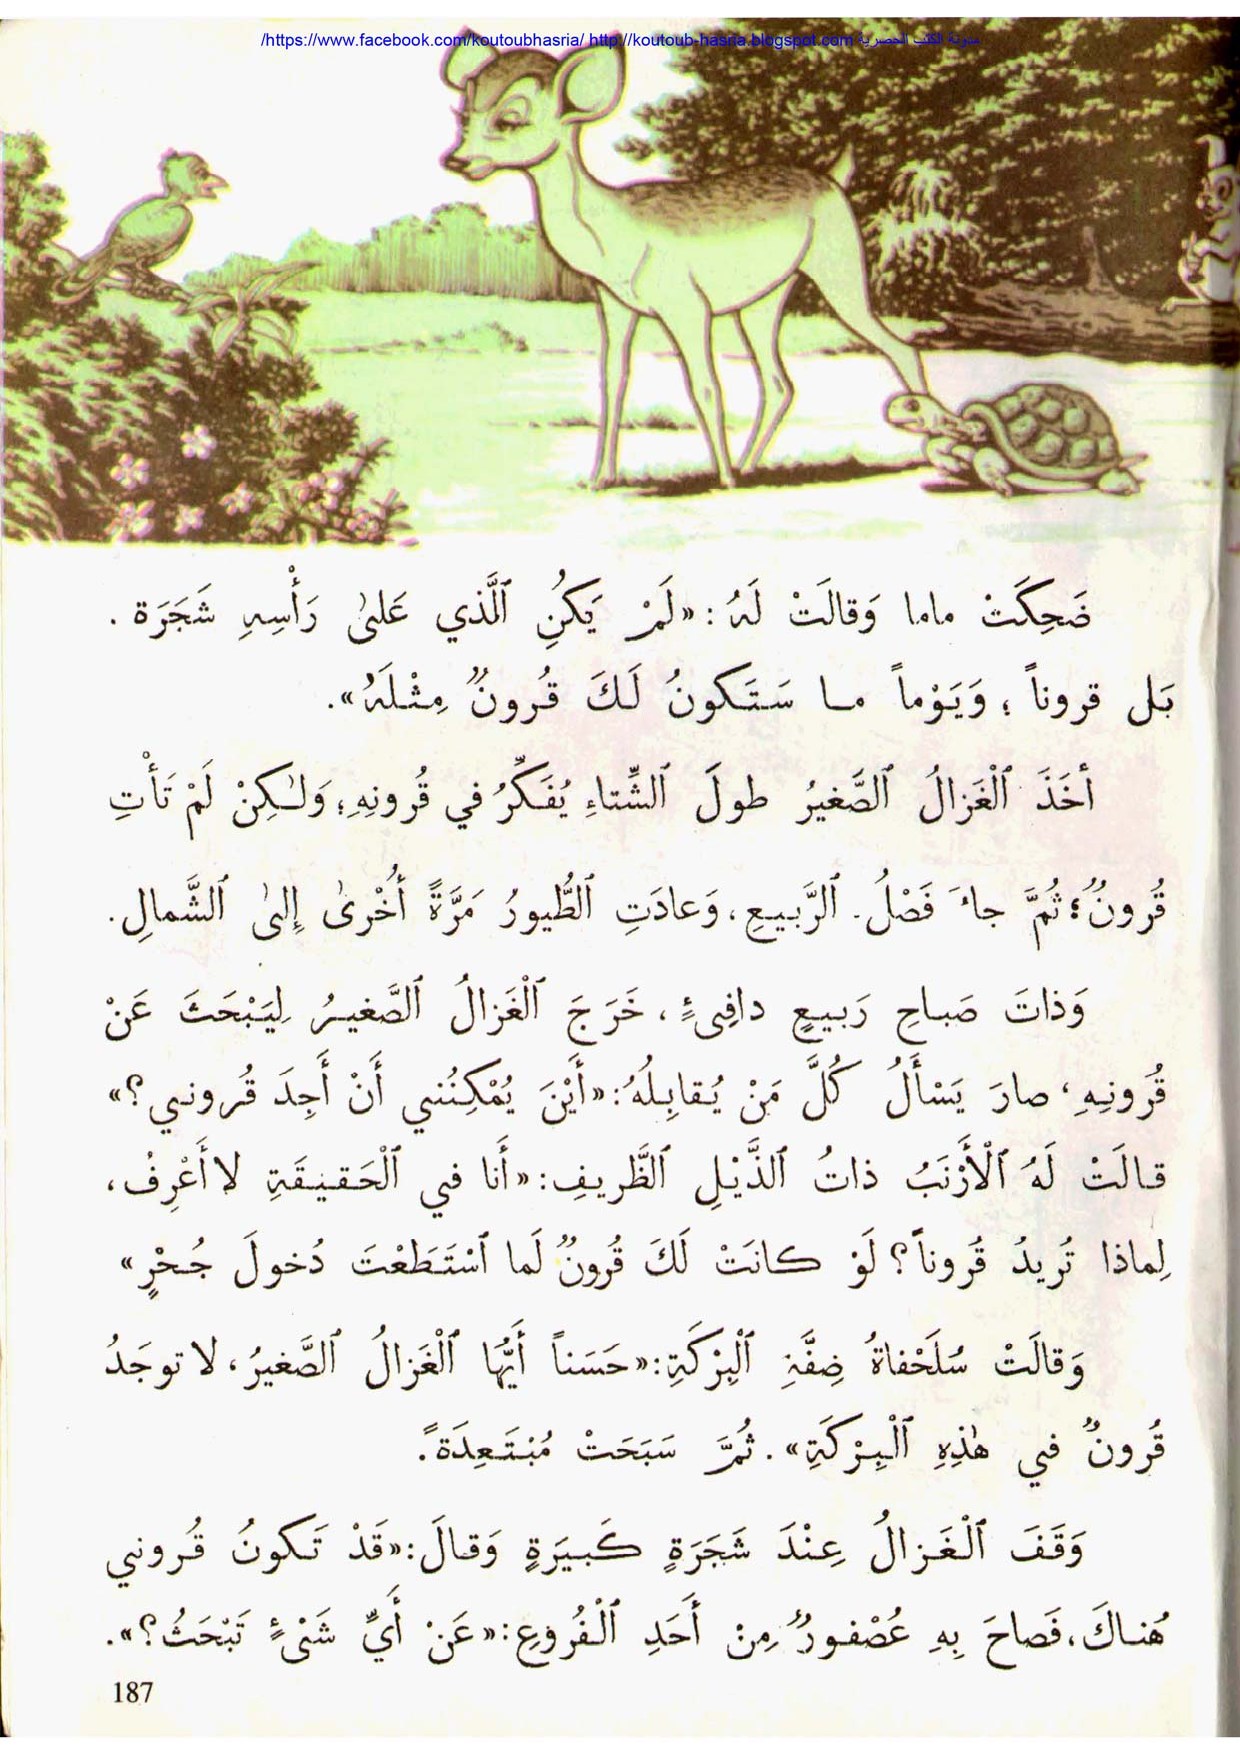 /https://www.facebook.com/koutoubhasria/ http://koutoub-hasria.blogspot.com مدونة الكتب الحصرية
ضَحِكَتْ ماما وَقالَتْ لَهُ : «لَمْ يَكُنِ ٱلَّذي عَلىٰ رَأْسِهِ شَجَرَة .
بَل قروناً ؛ وَيَوْماً ما سَتَكونُ لَكَ قُرونٌ مِثْلَهُ».
أخَذَ ٱلْغَزالُ ٱلصَّغيرُ طولَ ٱلشِّتاءِ يُفَكِّرُ في قُرونِهِ؛ وَلٰكِنْ لَمْ تَأْتِ
قُرونٌ؛ ثُمَّ جاءَ فَصْلُ ٱلرَّبيعِ، وَعادَتِ ٱلطُّيورُ مَرَّةً أُخْرىٰ إِلىٰ ٱلشَّمالِ.
وَذاتَ صَباحِ رَبيعٍ دافِىءٍ، خَرَجَ ٱلْغَزالُ ٱلصَّغيرُ لِيَبْحَثَ عَنْ
قُرونِهِ، صارَ يَسْأَلُ كُلَّ مَنْ يُقابِلُهُ: «أَيْنَ يُمْكِنُني أَنْ أَجِدَ قُروني؟»
قالَتْ لَهُ ٱلْأَرْنَبُ ذاتُ ٱلذَّيْلِ ٱلظَّريفِ: «أَنا في ٱلْحَقيقَةِ لا أَعْرِفُ،
لِماذا تُريدُ قُروناً؟ لَوْ كانَتْ لَكَ قُرونٌ لَما ٱسْتَطَعْتَ دُخولَ جُحْرٍ»
وَقالَتْ سُلَحْفاةُ ضِفَّةِ ٱلْبِرْكَةِ: «حَسَناً أَيُّها ٱلْغَزالُ ٱلصَّغيرُ، لا توجَدُ
قُرونٌ في هٰذِهِ ٱلْبِرْكَةِ». ثُمَّ سَبَحَتْ مُبْتَعِدَةً.
وَقَفَ ٱلْغَزالُ عِنْدَ شَجَرَةٍ كَبيرَةٍ وَقالَ: «قَدْ تَكونُ قُروني
هُناكَ، فَصاحَ بِهِ عُصْفورٌ مِنْ أَحَدِ ٱلْفُروعِ: «عَنْ أَيِّ شَىْءٍ تَبْحَثُ؟».
187